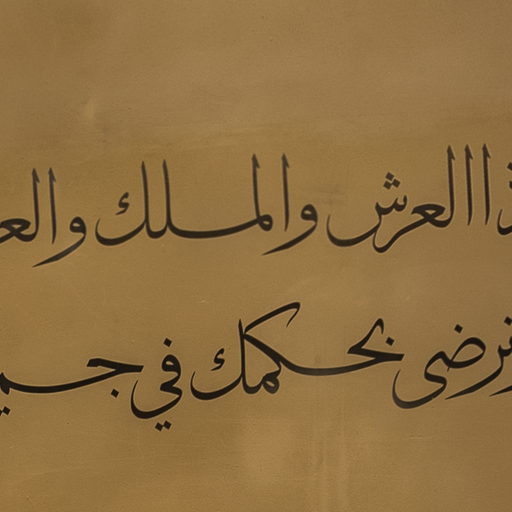 ذا العرش والملك والع
نرضى بحكمك في جميـ